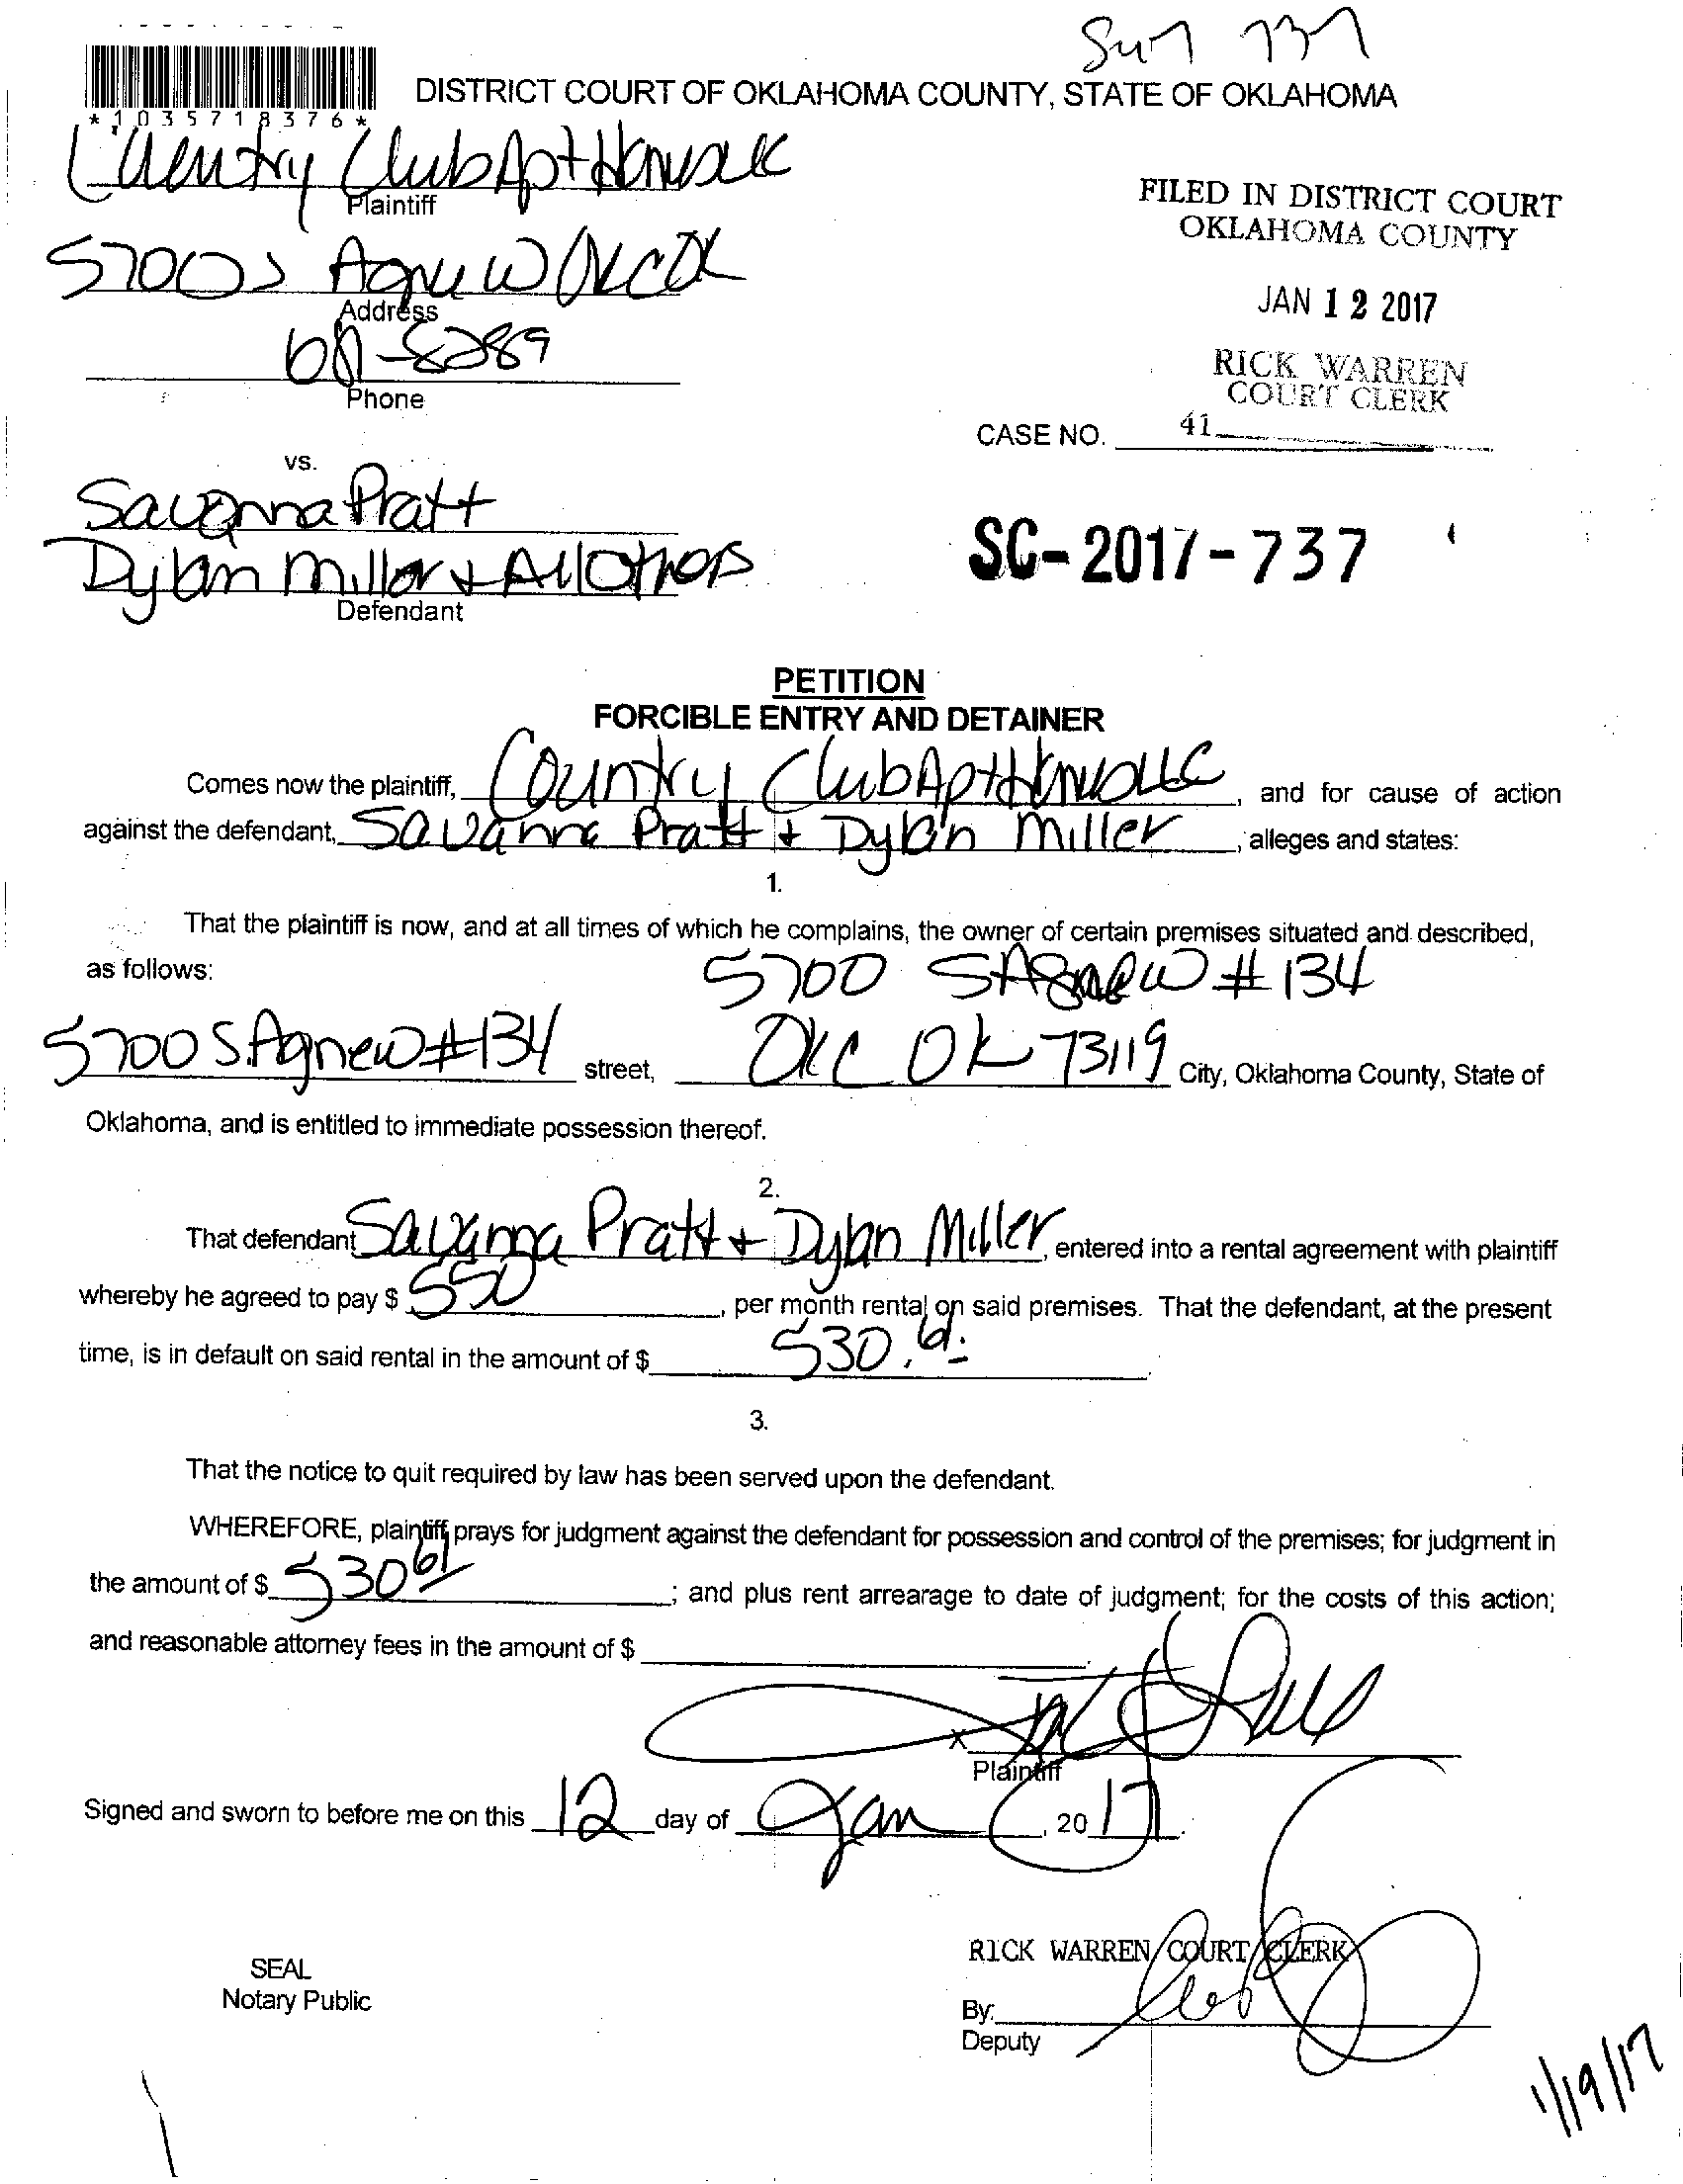 Sc17 737
*1035718376*
DISTRICT COURT OF OKLAHOMA COUNTY, STATE OF OKLAHOMA
Country Club Apt
Plaintiff
5700 S Agnew OKC OK
Address
-8289
Phone
FILED IN DISTRICT COURT
OKLAHOMA COUNTY
JAN 12 2017
RICK WARREN
COURT CLERK
CASE NO. 41
vs.
Savanna Pratt
Dylan Miller + All Others
Defendant
SC-2017-737
PETITION
FORCIBLE ENTRY AND DETAINER
Comes now the plaintiff, Country Club Apt LLC, and for cause of action
against the defendant, Savanna Pratt + Dylan Miller, alleges and states:
1.
That the plaintiff is now, and at all times of which he complains, the owner of certain premises situated and described,
as follows: 5700 S Agnew # 134
5700 S. Agnew #134 street, OKC OK 73119 City, Oklahoma County, State of
Oklahoma, and is entitled to immediate possession thereof.
2.
That defendant Savanna Pratt + Dylan Miller, entered into a rental agreement with plaintiff
whereby he agreed to pay $ 550, per month rental on said premises. That the defendant, at the present
time, is in default on said rental in the amount of $ 530.61.
3.
That the notice to quit required by law has been served upon the defendant.
WHEREFORE, plaintiff prays for judgment against the defendant for possession and control of the premises; for judgment in
the amount of $ 530 61; and plus rent arrearage to date of judgment; for the costs of this action;
and reasonable attorney fees in the amount of $
x
Plaintiff
Signed and sworn to before me on this 12 day of Jan, 20 17.
RICK WARREN COURT CLERK
SEAL
Notary Public
By:
Deputy
1/19/17